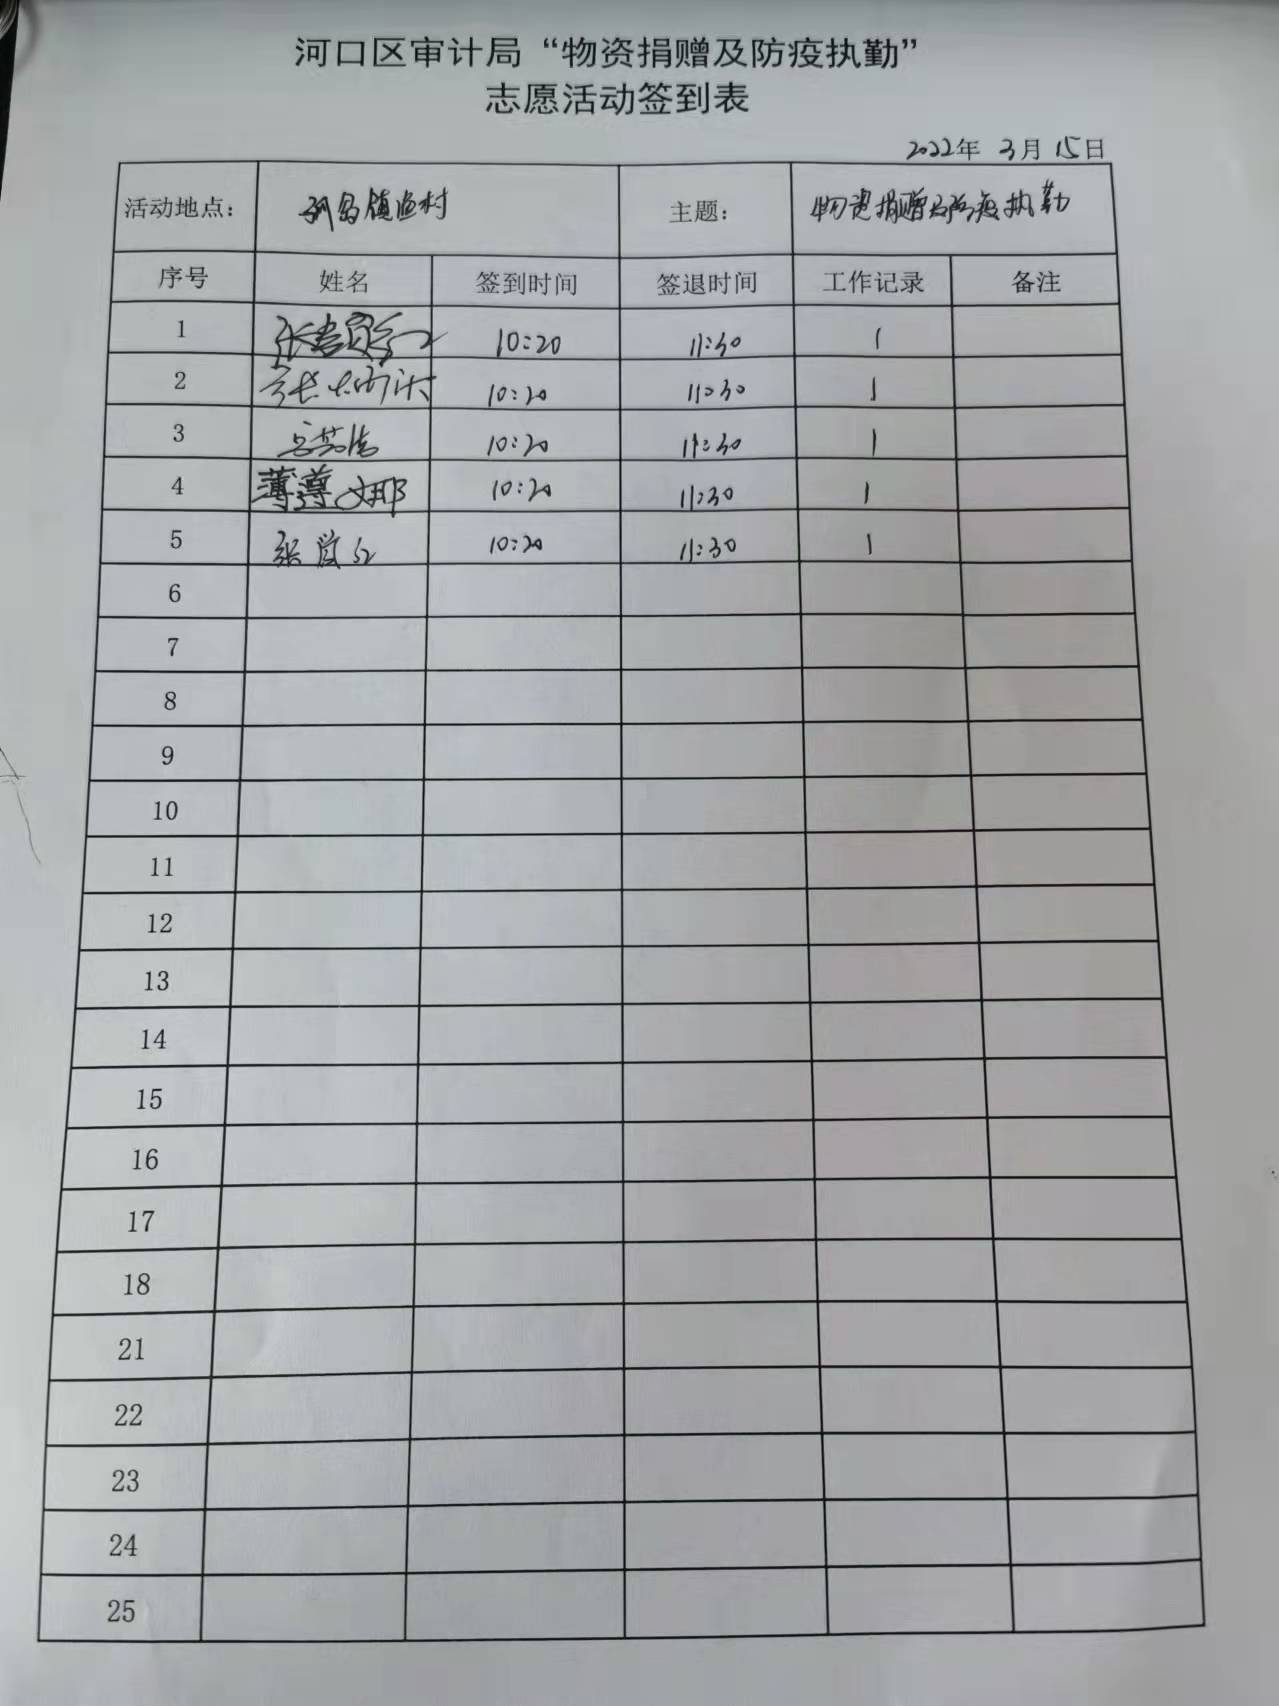 河口区审计局“物资捐赠及防疫执勤”
志愿活动签到表
2022年 3月 15日
活动地点： 镇渔村 主题： 物资捐赠及防疫执勤
序号 姓名 签到时间 签退时间 工作记录 备注
1 10:20 11:30 1
2 10:20 11:30 1
3 10:20 11:30 1
4 10:20 11:30 1
5 10:20 11:30 1
6
7
8
9
10
11
12
13
14
15
16
17
18
21
22
23
24
25